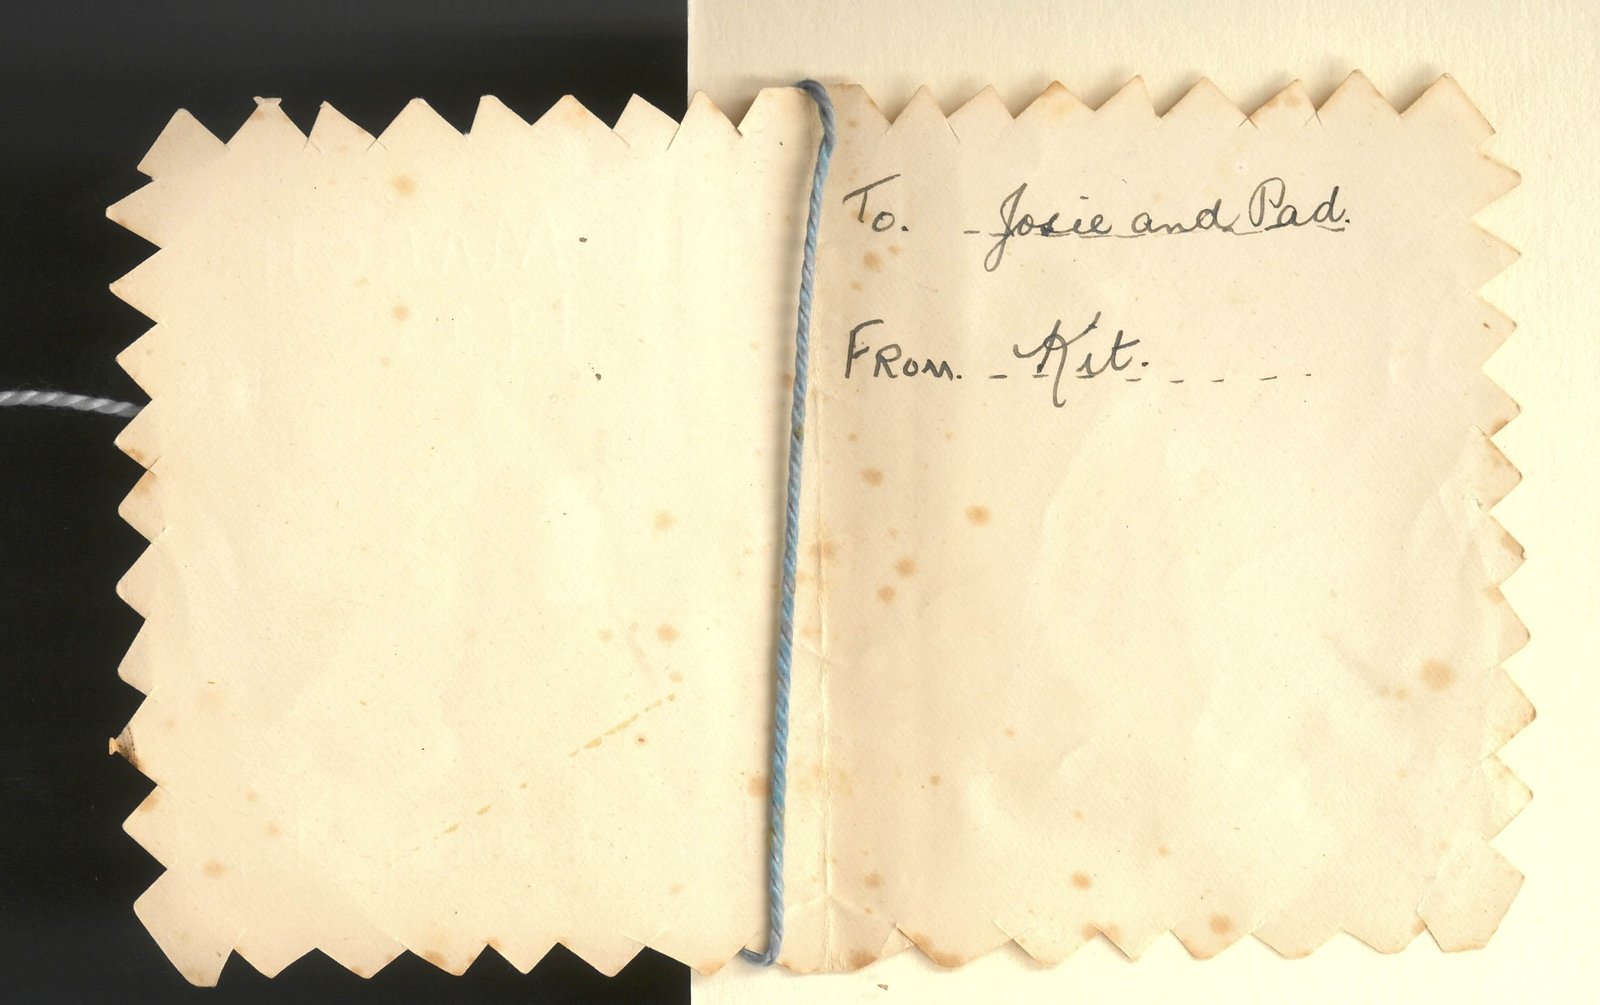 To. - Josie and Pad.
From. - Kit. - - - - -